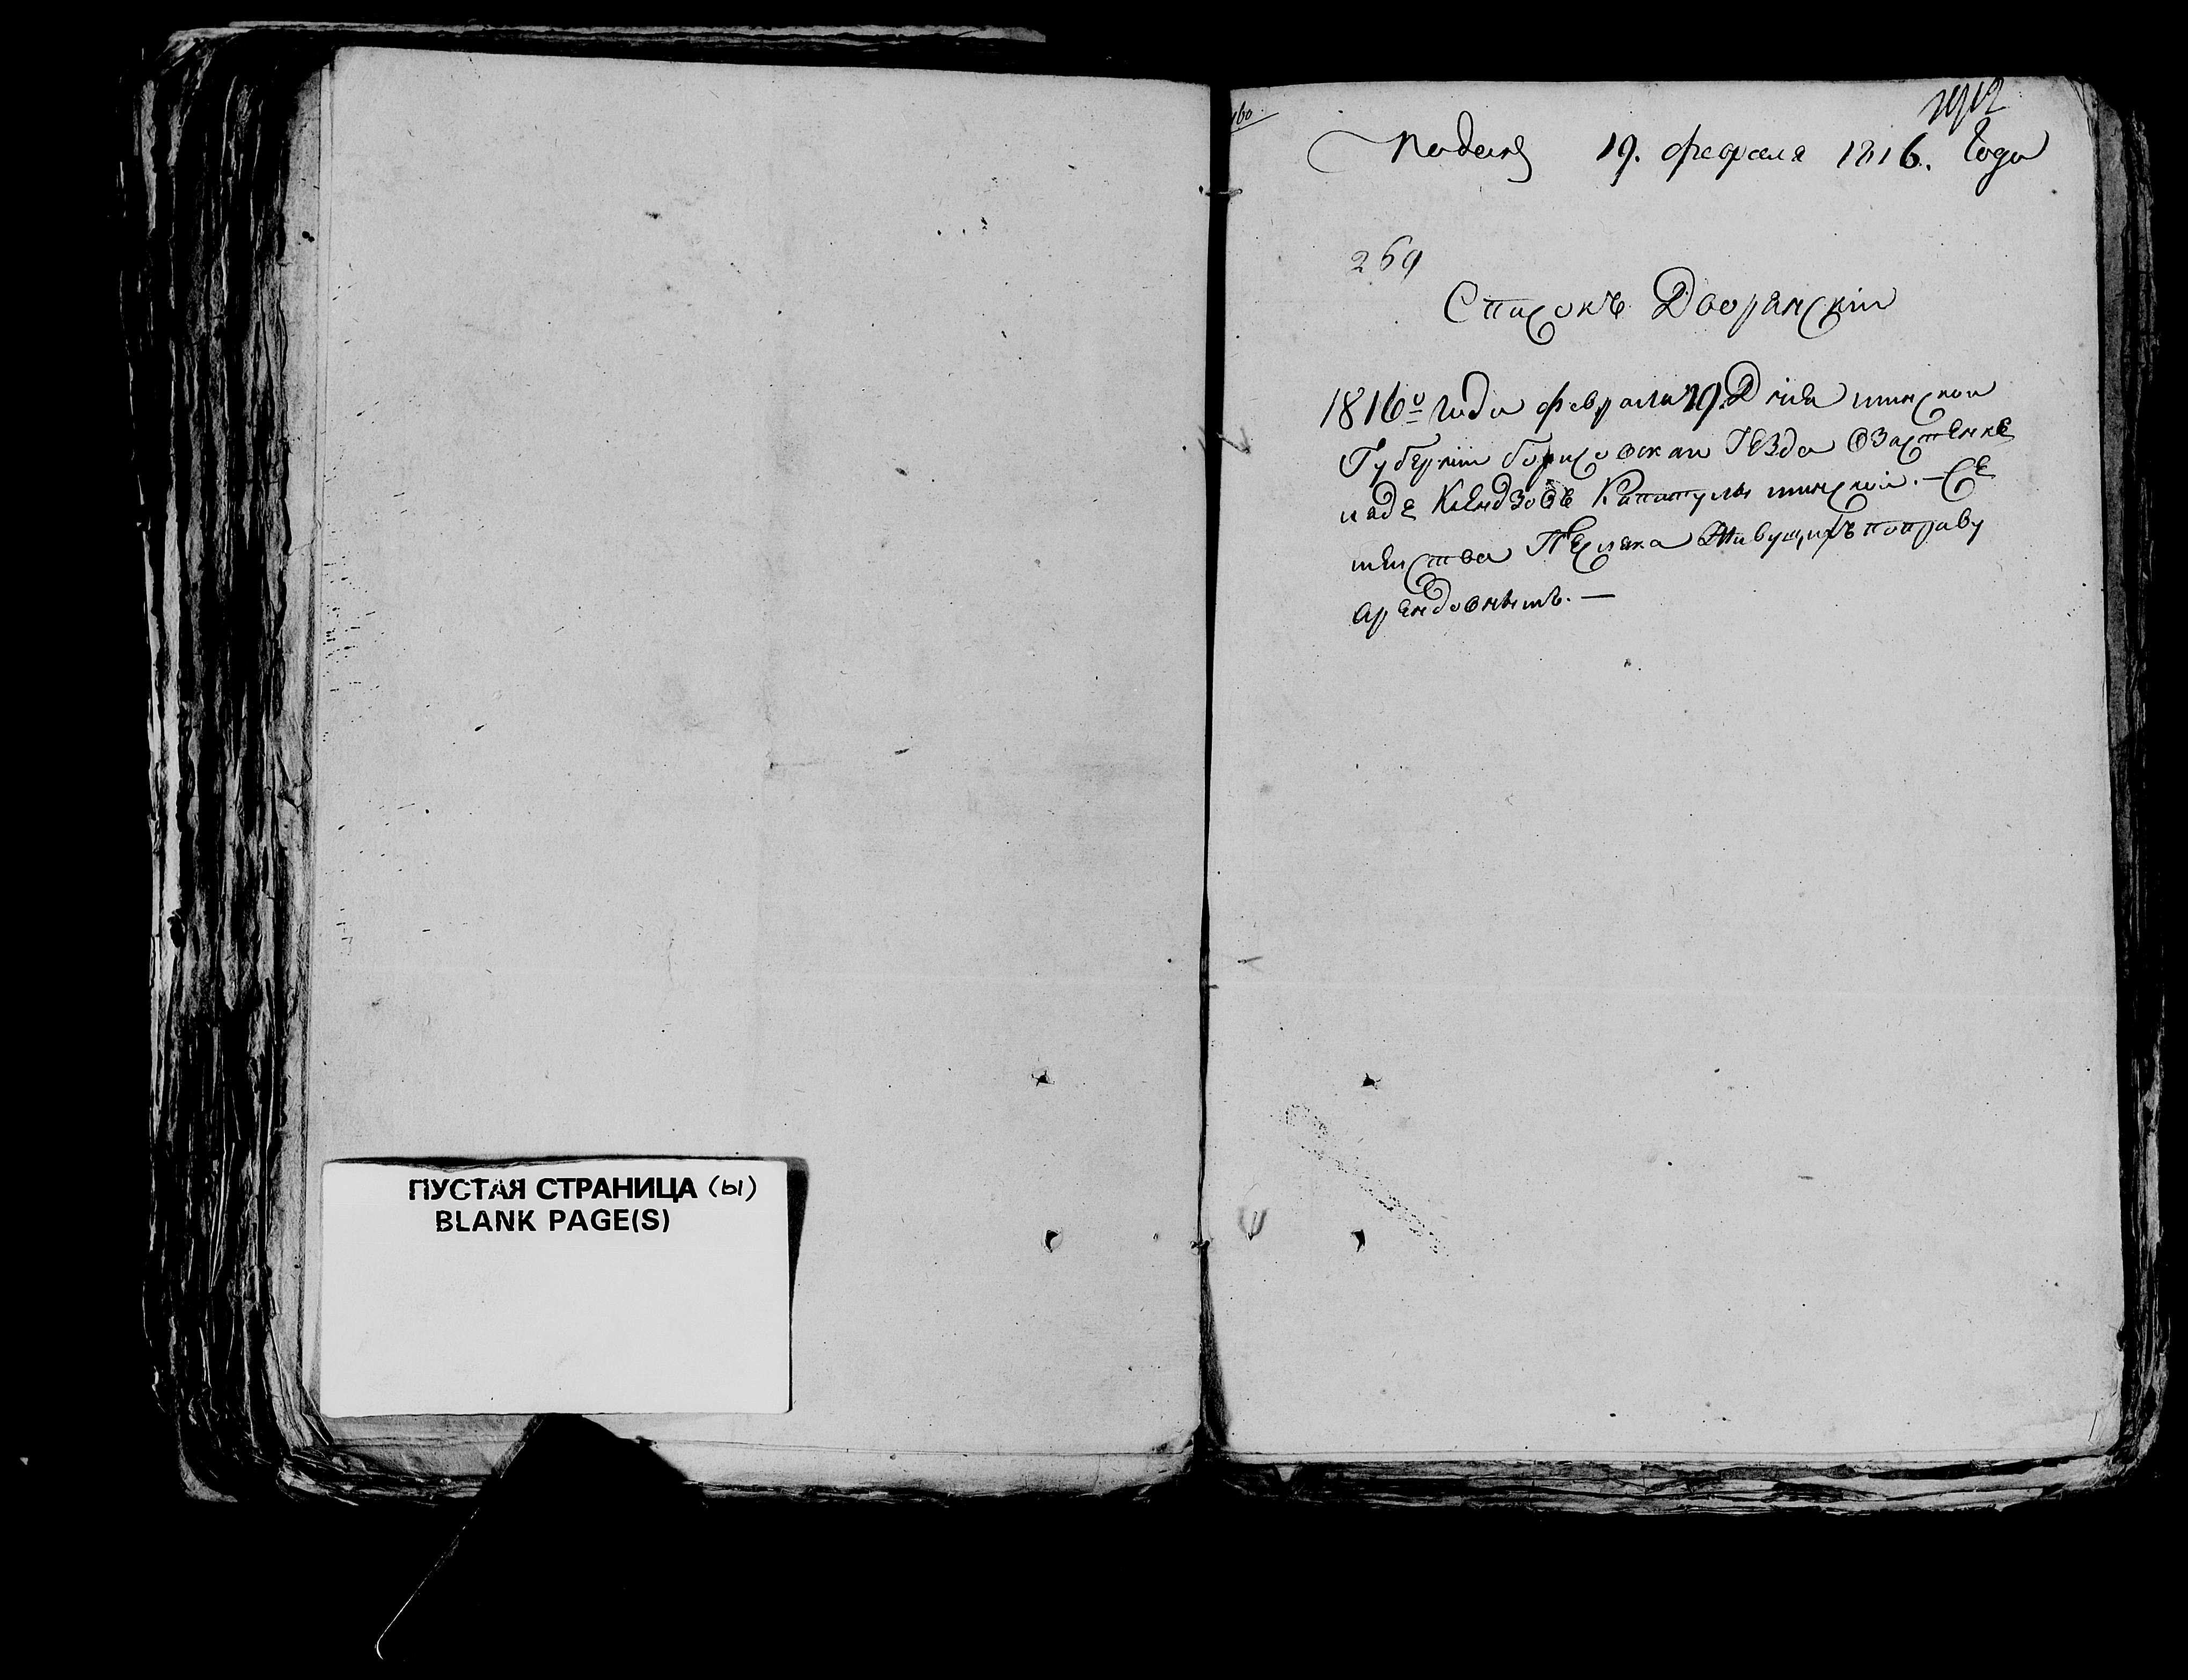 ПУСТАЯ СТРАНИЦА (ы)
BLANK PAGE(S)
160
Поданъ 19. февраля 1816. Года
269
Списокъ Дворянскій
1816го Года февраля 19. Дня минской
Губерніи борисовскаи Уѣзда Озастенке
Ксендзовъ Капитулы минской. —
Живущихъ по праву
арендовнымъ. —